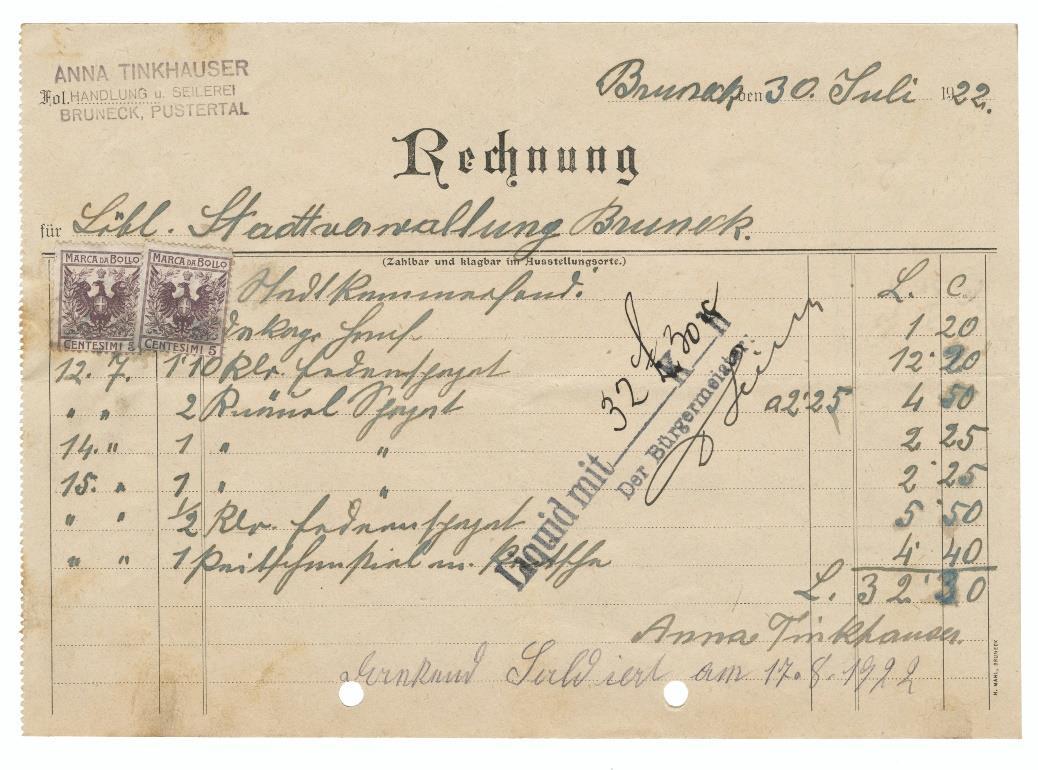 ANNA TINKHAUSER
Fol. HANDLUNG u. SEILEREI
BRUNECK, PUSTERTAL
Bruneck, den 30. Juli 1922.
Rechnung
für Löbl. Stadtverwaltung Bruneck.
(Zahlbar und klagbar im Ausstellungsorte.)
MARCA DA BOLLO MARCA DA BOLLO
CENTESIMI 5 CENTESIMI 5
L. C.
1 20
12. 7. 1'10 Klr. Federnspagat 12' 20
" " 2 Knäuel Spagat a 2'25 4 50
14. " 1 " " 2 25
15. " 1 " " 2' 25
" " 1/2 Klr. Federnspagat 5' 50
" " 1 Peitschenstiel m. Peitsche 4' 40
L. 32'30
Liquid mit 32 30 K h
Der Bürgermeister:
Anna Tinkhauser.
dankend Saldiert am 17.8.1922
H. MAHL, BRUNECK